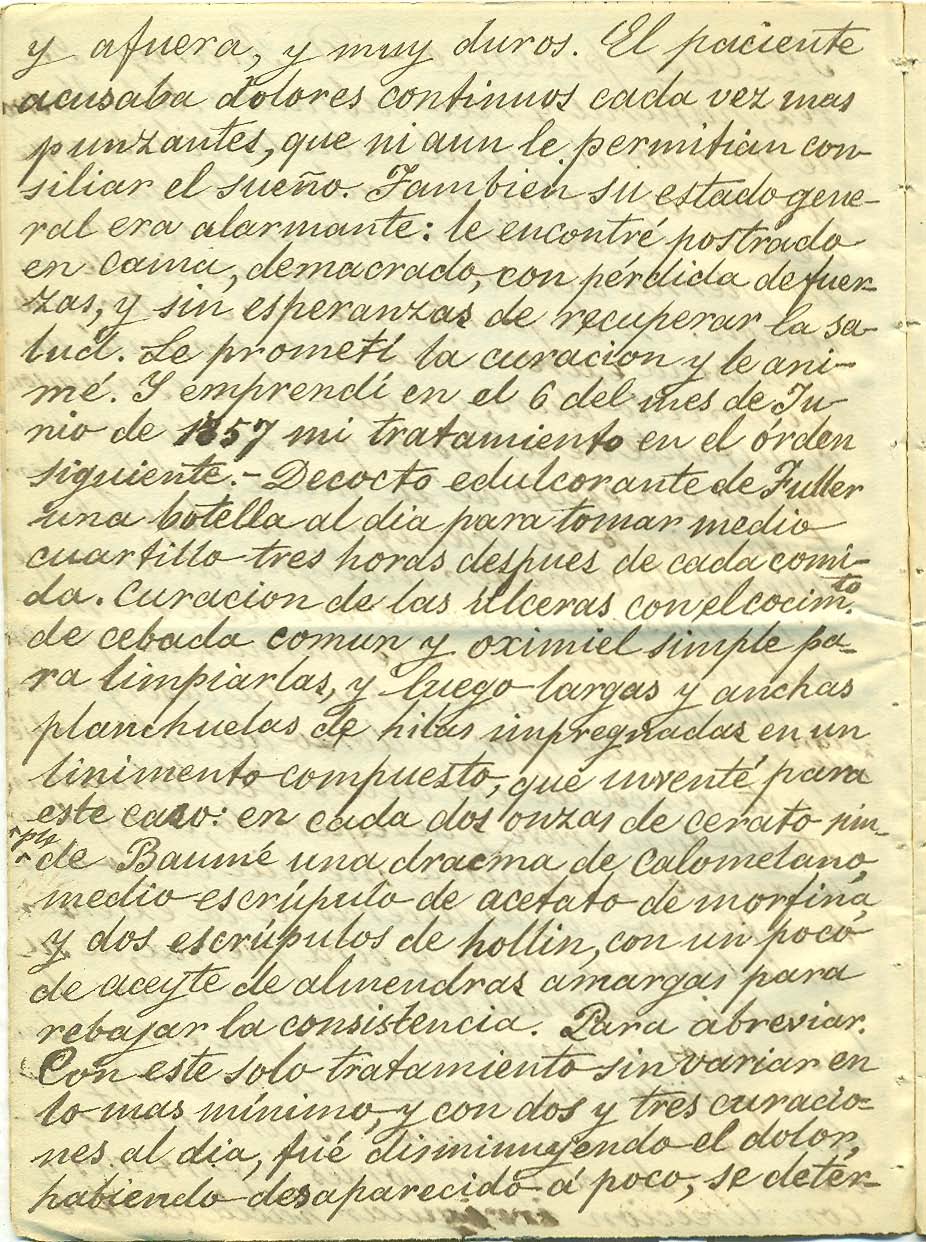 y afuera, y muy duros. El paciente
acusaba dolores continuos cada vez mas
punzantes, que ni aun le permitian con-
siliar el sueño. Tambien su estado gene-
ral era alarmante: le encontré postrado
en cama, demacrado, con pérdida de fuer-
zas, y sin esperanzas de recuperar la sa-
lud. Le prometí la curacion y le ani-
mé. Y emprendí en el 6 del mes de Ju-
nio de 1857 mi tratamiento en el órden
siguiente.- Decocto edulcorante de Fuller
una botella al dia para tomar medio
cuartillo tres horas despues de cada comi-
da. Curacion de las úlceras con el cocim.to
de cebada comun y oximiel simple pa-
ra limpiarlas, y luego largas y anchas
planchuelas de hilas impregnadas en un
linimento compuesto, que inventé para
este caso: en cada dos onzas de cerato sim-
ple
de Baumé una dracma de calomelano,
medio escrúpulo de acetato de morfina,
y dos escrúpulos de hollin, con un poco
de aceyte de almendras amargas para
rebajar la consistencia. Para abreviar.
Con este solo tratamiento sin variar en
lo mas mínimo, y con dos y tres curacio-
nes al dia, fué disminuyendo el dolor,
habiendo desaparecido á poco, se deter-